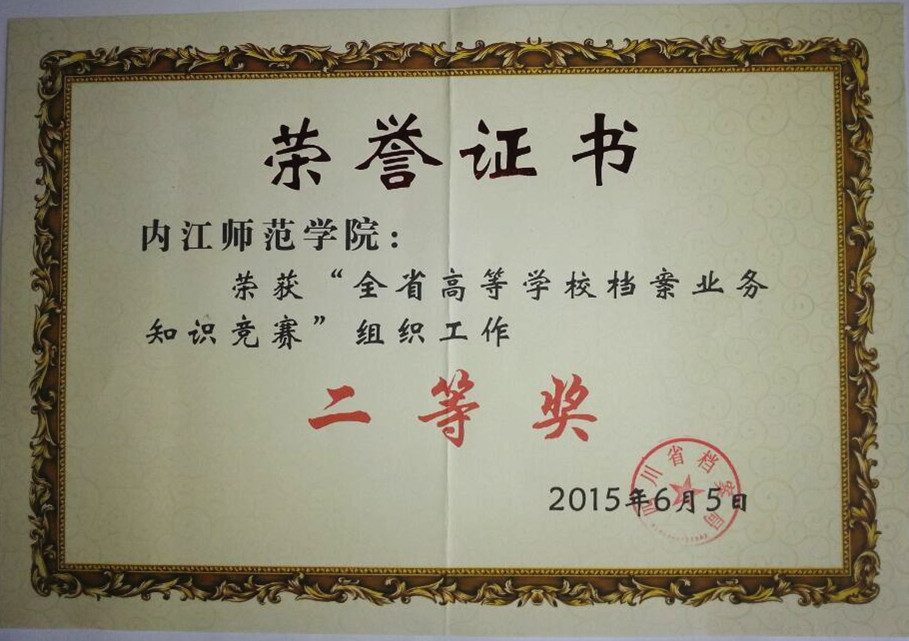 荣誉证书
内江师范学院：
荣获“全省高等学校档案业务
知识竞赛”组织工作
二等奖
四川省档案局
2015年6月5日